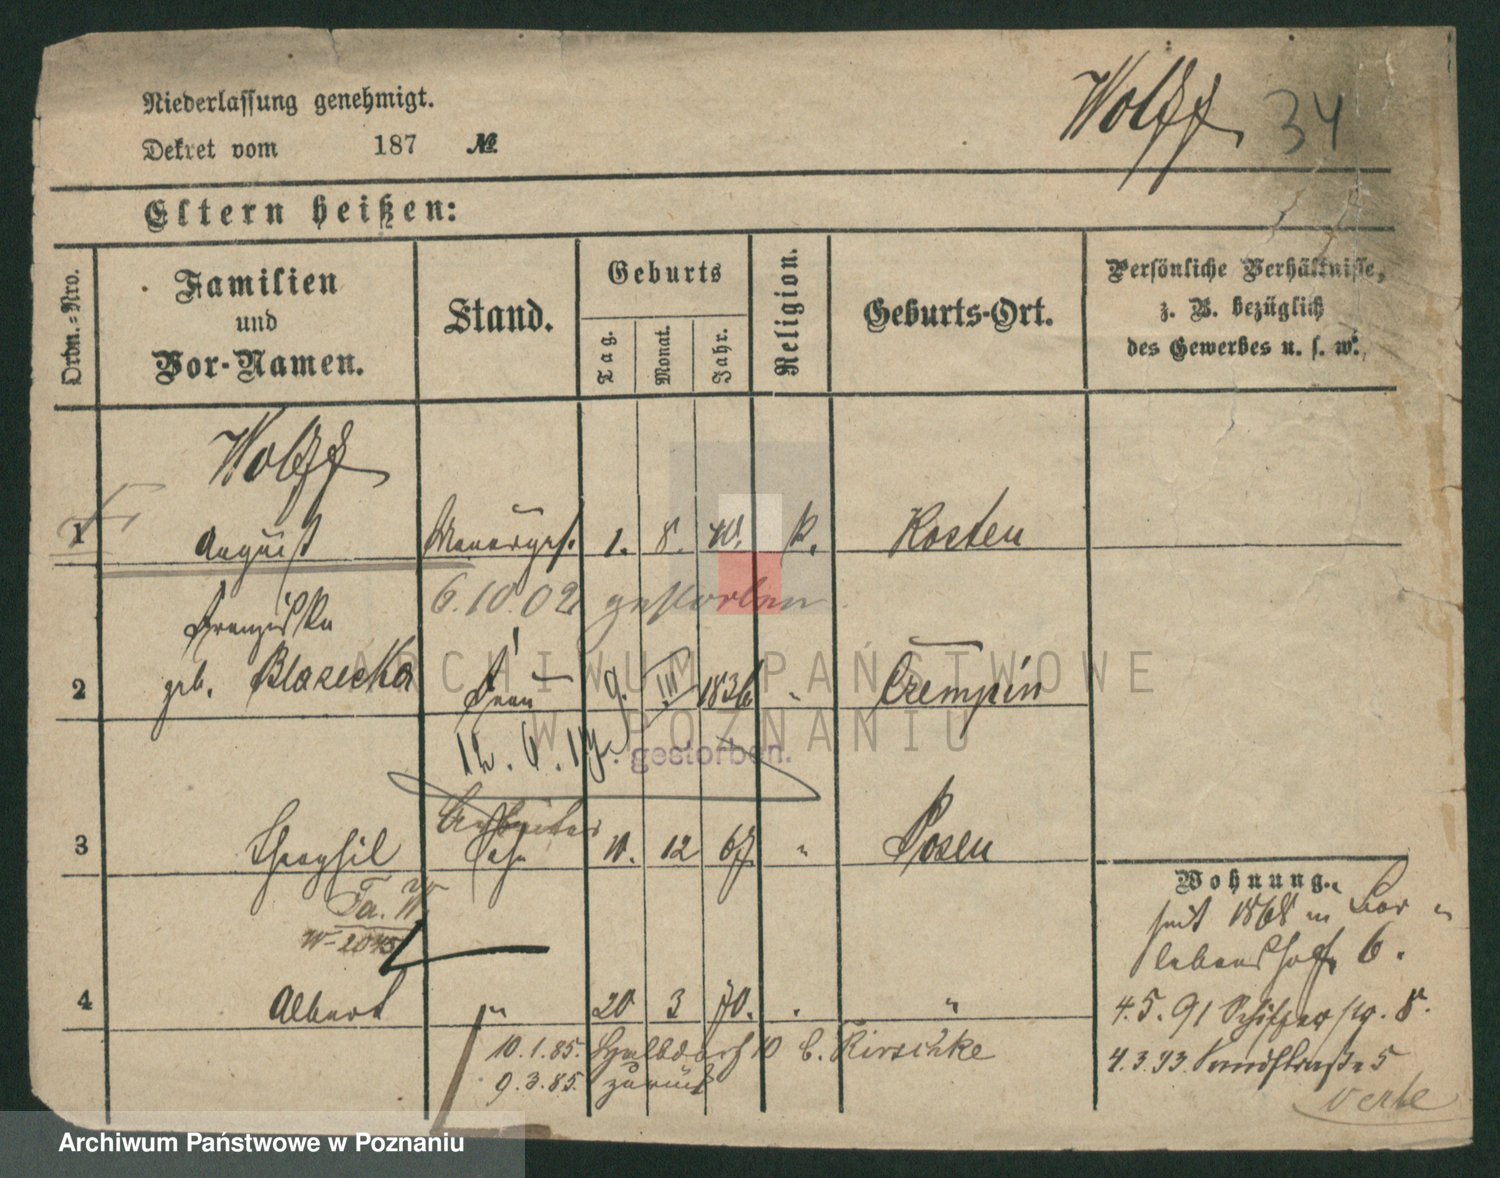 Niederlassung genehmigt.
Dekret vom 187 №
Wolff 34
Eltern heißen:
Ordn.-Nro.
Familien
und
Vor-Namen.
Stand.
Geburts
Tag.
Monat.
Jahr.
Religion.
Geburts-Ort.
Persönliche Verhältnisse,
z. B. bezüglich
des Gewerbes u. s. w.
Wolff
1 August Maurerges. 1. 8. 40. k. Kosten
6.10.02 gestorben
Franziska
2 geb. Blasecka Frau 9. III 1836 " Czempin
12. 6. gestorben.
Arbeiter
3 Theophil Sohn 11. 12 67 " Posen
Ta. W
Wohnung.
seit 1868 in
6.
4 Albert " 20 3 70. " "
4.5.91 Schifferstr. 8.
10.1.85. Halbdorf 10 b. Kirschke
4.3.93 Sandstraße 5
9.3.85. zurück
verte
ARCHIWUM PAŃSTWOWE
W POZNANIU
Archiwum Państwowe w Poznaniu